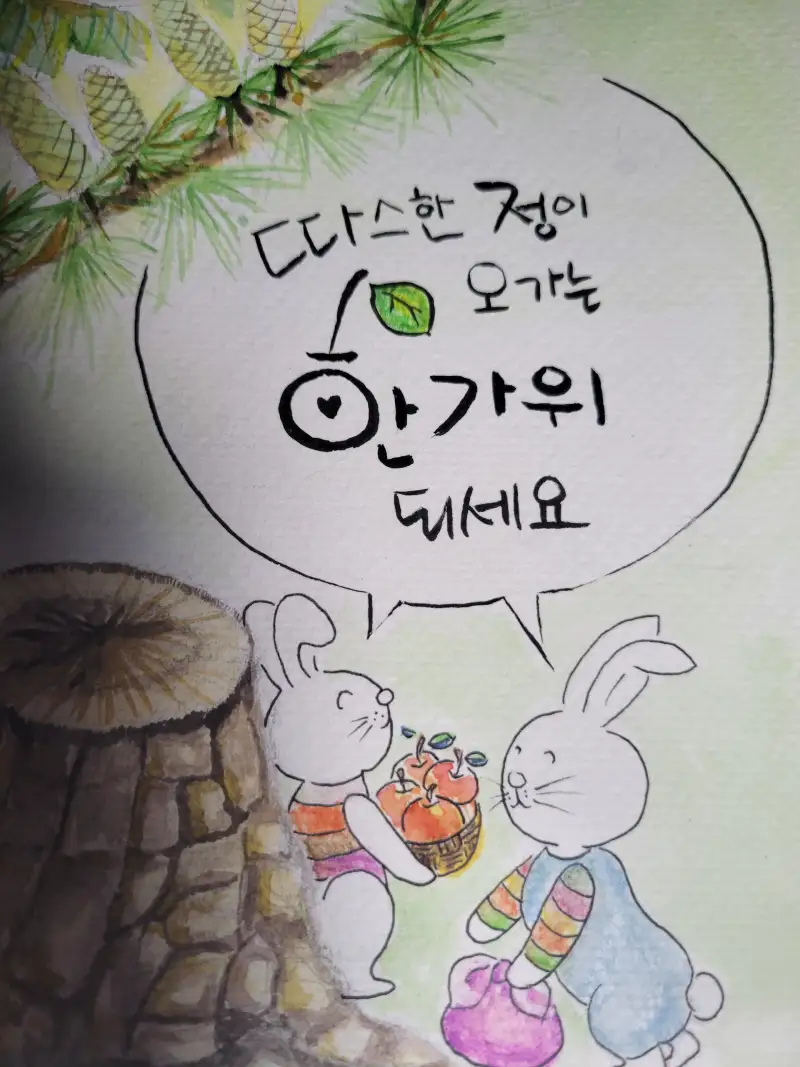 따스한 정이
오가는
한가위
되세요